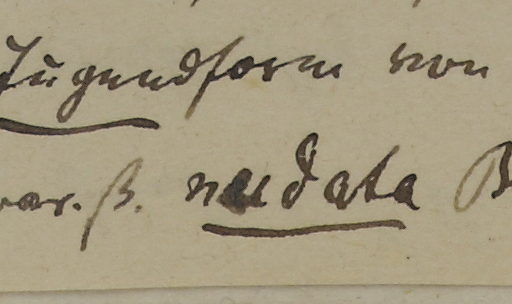 Jugendform von
var. β. nudata B